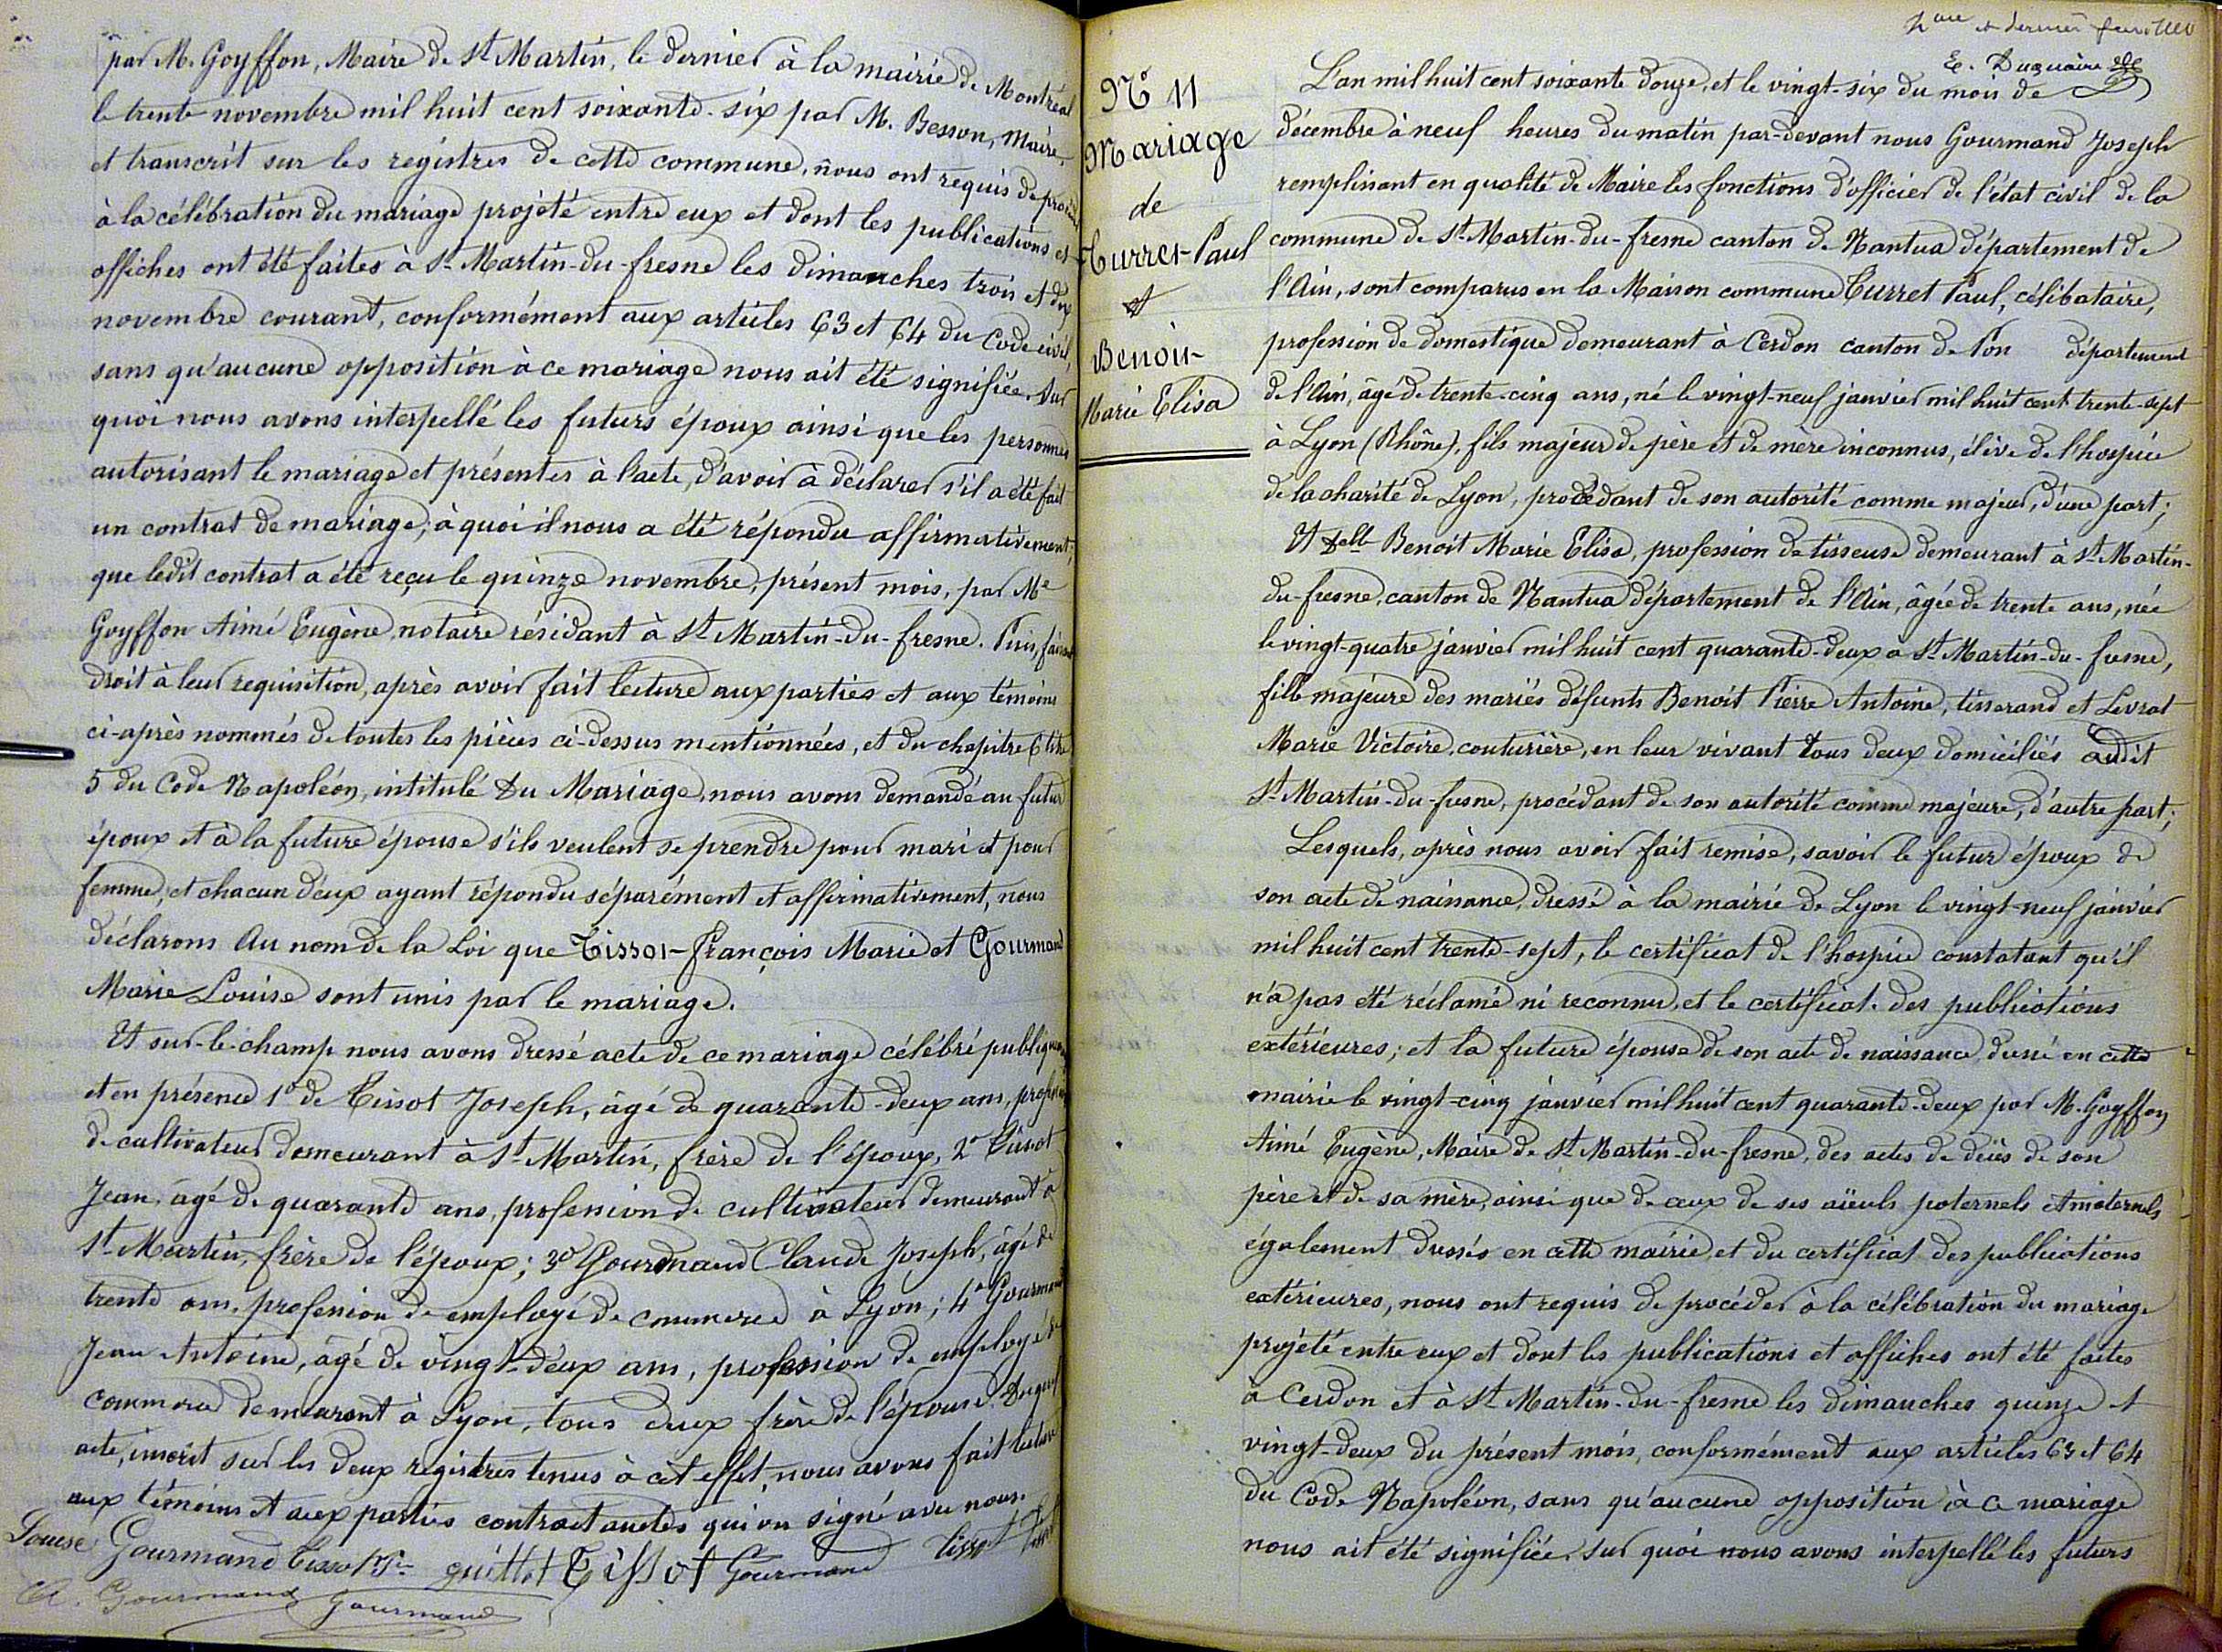 par M. Goyffon, Maire de St Martin, le dernier à la mairie de Montréal
le trente novembre mil huit cent soixante-six par M. Besson, Maire,
et transcrit sur les registres de cette commune, nous ont requis de
à la célébration du mariage projeté entre eux et dont les publications et
affiches ont été faites à St Martin-du-fresne les dimanches trois et dix
novembre courant, conformément aux articles 63 et 64 du Code civil,
sans qu'aucune opposition à ce mariage nous ait été signifiée. Sur
quoi nous avons interpellé les futurs époux ainsi que les personnes
autorisant le mariage et présentes à l'acte, d'avoir à déclarer s'il a été fait
un contrat de mariage; à quoi il nous a été répondu affirmativement,
que ledit contrat a été reçu le quinze novembre, présent mois, par Me
Goyffon Aimé Eugène, notaire résidant à St Martin-du-fresne. Puis, faisant
droit à leur requisition, après avoir fait lecture aux parties et aux témoins
ci-après nommés de toutes les pièces ci-dessus mentionnées, et du chapitre 6 titre
5 du Code Napoléon, intitulé Du Mariage, nous avons demandé au futur
époux et à la future épouse s'ils veulent se prendre pour mari et pour
femme, et chacun d'eux ayant répondu séparément et affirmativement, nous
déclarons Au nom de la Loi que Tissot François Marie et Gourmand
Marie Louise sont unis par le mariage.
Et sur-le-champ nous avons dressé acte de ce mariage célébré publiquement
et en présence 1° de Tissot Joseph, âgé de quarante-deux ans, profession
de cultivateur demeurant à St Martin, frère de l'époux, 2° Tissot
Jean, âgé de quarante ans, profession de cultivateur demeurant à
St Martin, frère de l'époux; 3° Gourmand Claude Joseph, âgé de
trente ans, profession de employé de commerce à Lyon; 4° Gourmand
Jean Antoine, âgé de vingt-deux ans, profession de employé de
commerce demeurant à Lyon, tous deux frère de l'épouse. Duquel
acte, inscrit sur les deux registres tenus à cet effet, nous avons fait lecture
aux témoins et aux parties contractantes qui on signé avec nous.
Louise Gourmand Tissot guittot Tissot Gourmand Tissot
Gourmand Gourmand
et dernier feuillet
N° 11
Mariage
de
Turret Paul
et
Benoit
Marie Elisa
L'an mil huit cent soixante douze, et le vingt-six du mois de
décembre à neuf heures du matin par-devant nous Gourmand Joseph
remplissant en qualité de Maire les fonctions d'officier de l'état civil de la
commune de St Martin-du-fresne canton de Nantua département de
l'Ain, sont comparus en la Maison commune Turret Paul, célibataire,
profession de domestique demeurant à Cerdon canton de Pon département
de l'Ain, âgé de trente-cinq ans, né le vingt-neuf janvier mil huit cent trente-sept
à Lyon (Rhône), fils majeur de père et de mère inconnus, élève de l'hospice
de la charité de Lyon, procédant de son autorité comme majeur, d'une part;
Et Delle Benoit Marie Elisa, profession de tisseuse demeurant à St Martin-
du-fresne, canton de Nantua département de l'Ain, âgée de trente ans, née
le vingt-quatre janvier mil huit cent quarante-deux a St Martin-du-fresne,
fille majeure des mariés défunts Benoit Pierre Antoine, tisserand et Levrat
Marie Victoire, couturière, en leur vivant tous deux domiciliés audit
St Martin-du-fresne, procédant de son autorité comme majeure, d'autre part;
Lesquels, après nous avoir fait remise, savoir le futur époux de
son acte de naissance, dressé à la mairie de Lyon le vingt-neuf janvier
mil huit cent trente-sept, le certificat de l'hospice constatant qu'il
n'a pas été réclamé ni reconnu, et le certificat des publications
extérieures; et la future épouse de son acte de naissance, dressé en cette
mairie le vingt-cinq janvier mil huit cent quarante-deux par M. Goyffon
Aimé Eugène, Maire de St Martin-du-fresne, des actes de décès de son
père et de sa mère, ainsi que de ceux de ses aïeuls paternels et maternels
également dressés en cette mairie et du certificat des publications
extérieures, nous ont requis de procéder à la célébration du mariage
projeté entre eux et dont les publications et affiches ont été faites
à Cerdon et à St Martin-du-fresne les dimanches quinze et
vingt-deux du présent mois, conformément aux articles 63 et 64
du Code Napoléon, sans qu'aucune opposition à ce mariage
nous ait été signifiée. Sur quoi nous avons interpellé les futurs